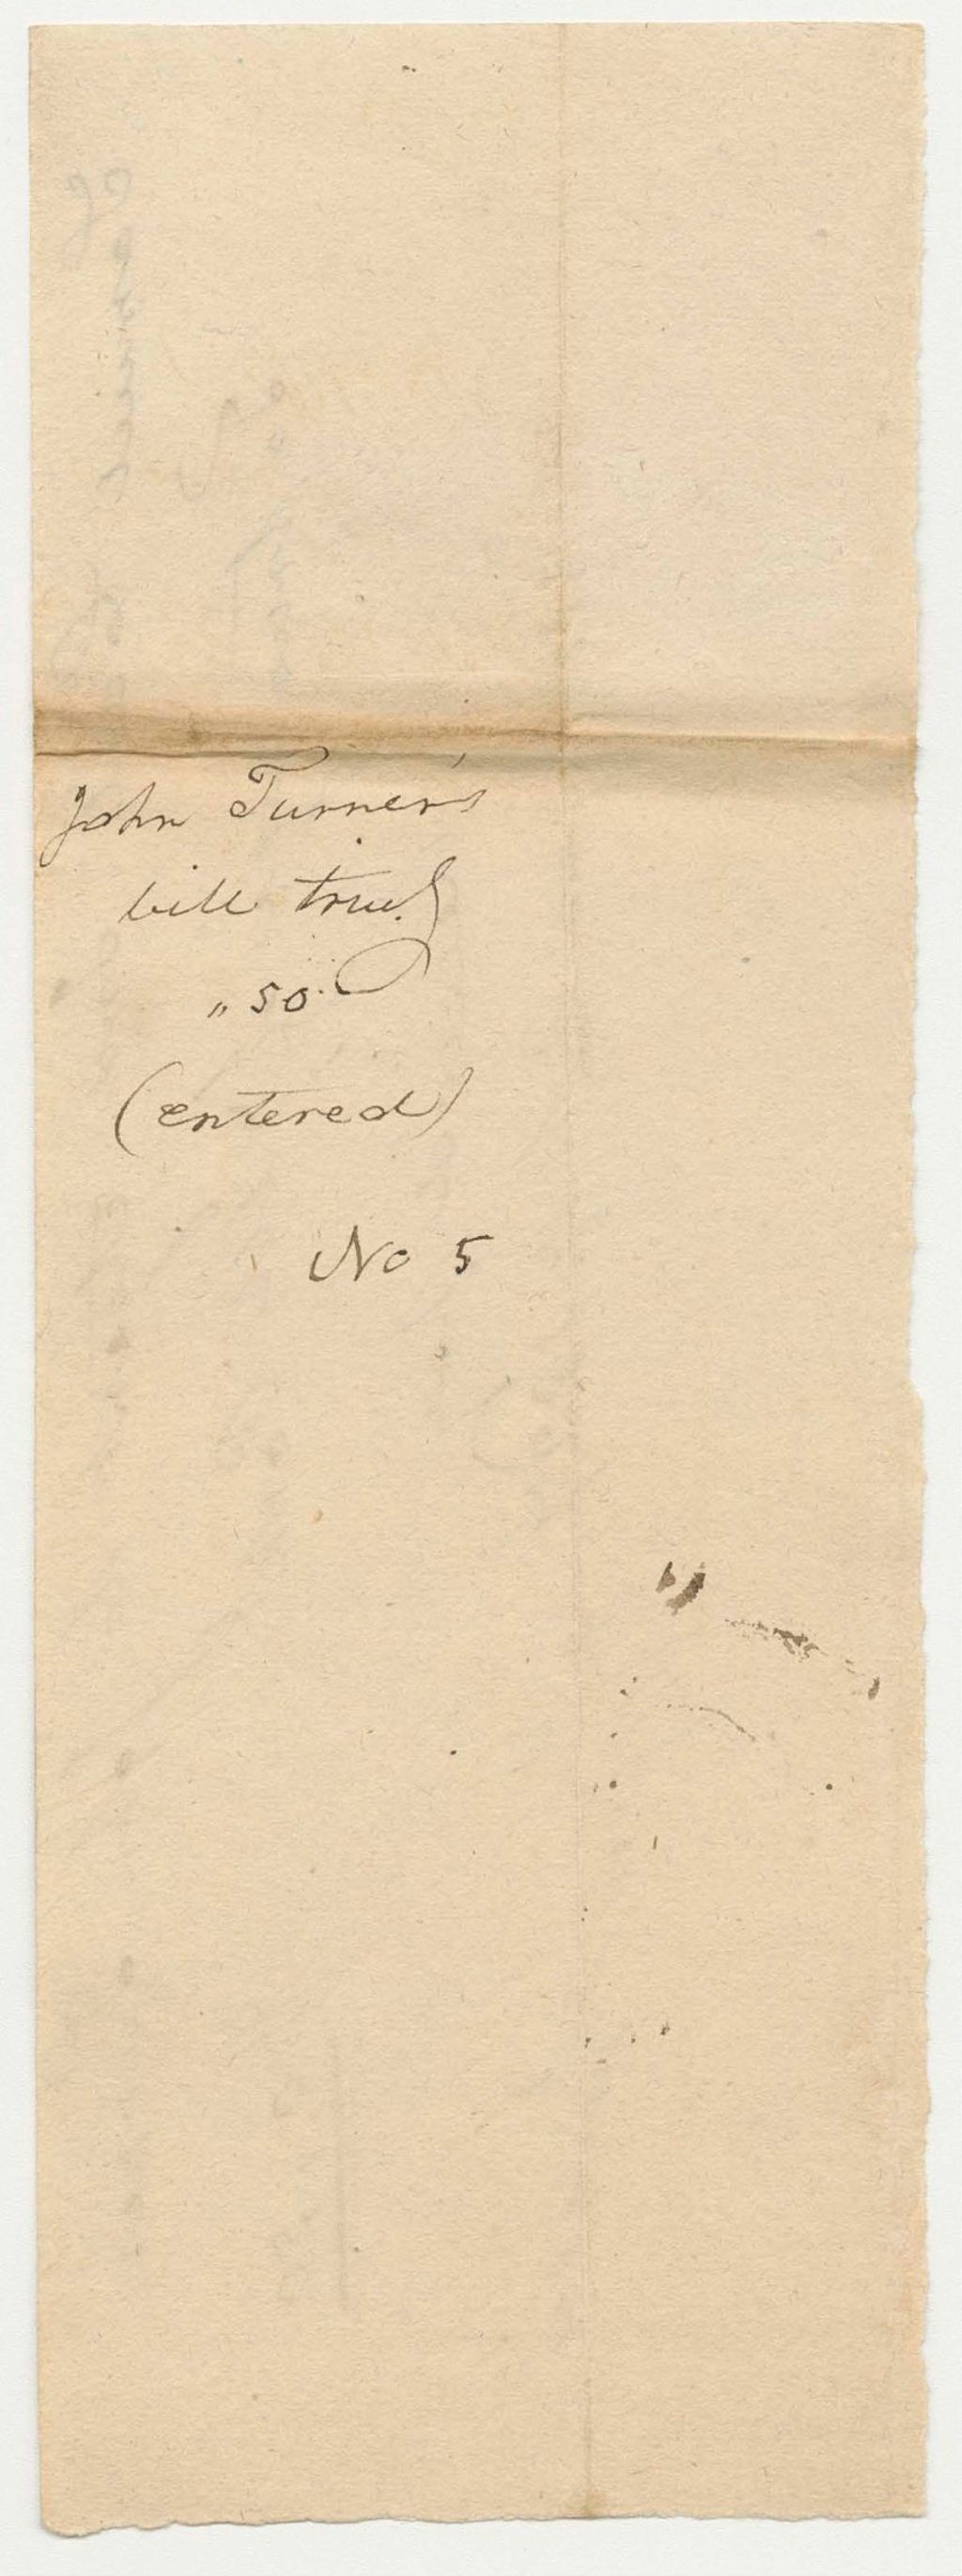 John Turner's
bill
" 50
(entered)
No 5